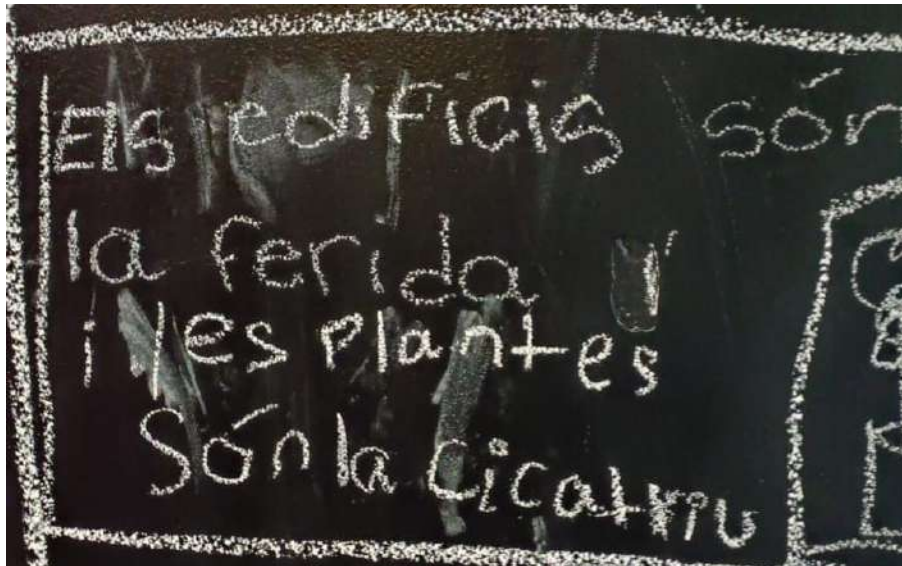 Els edificis són
la ferida
i les plantes
Són la Cicatriu